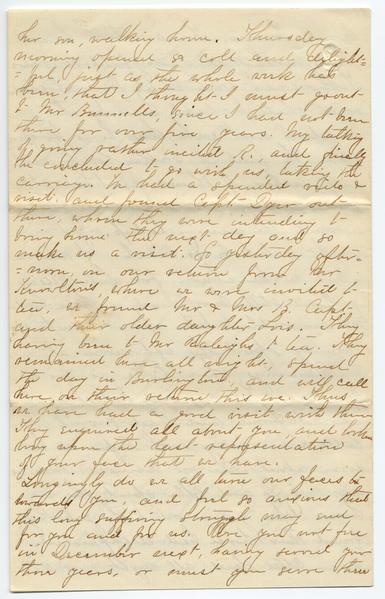 her son, walking home. Thursday
morning opened so cold and delight-
-ful, just as the whole week has
been that I thought I must go out
to Mr Bunnells, since I had not been
there for over five years. My talking
of going rather incited R., and finally
he concluded to go with us, taking the
carriage. We had a splendid ride &
visit, and found Capt. out
there, whom they were intending to
bring home the next day and so
make us a visit. So yesterday after-
-noon, on our return from Mr
where we were invited to
tea, we found Mr & Mrs B. Capt
and their older daughter. They
having been to Mr Raleighs to tea. They
remained here all night, spend
the day in Burlington, and will call
here on their return this eve. Thus
we have had a good visit with them
They enquired all about you, and looked
long upon the last representation
of your face that we have.
Longingly do we all turn our faces to-
wards you, and feel so anxious that
this long suffering struggle may end
for you and for us. Are you not free
in December next, having served your
three years, or must you serve three